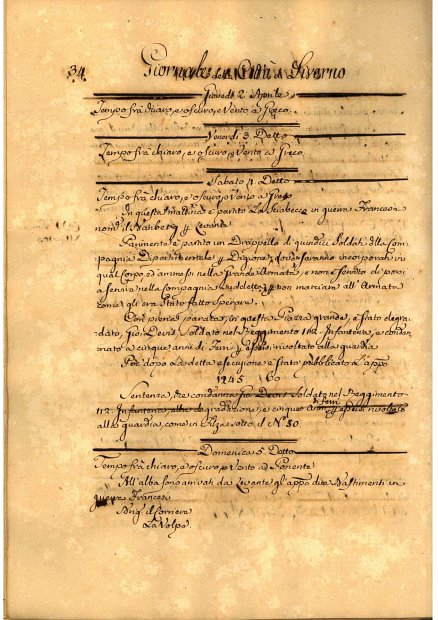 34 Giornale della Città di Livorno
Giovedì 2. Aprile
Tempo frà chiaro, e oscuro, e Vento a Greco.
Venerdì 3. Detto
Tempo frà chiaro, e oscuro, e Vento a Greco
Sabato Detto
Tempo frà chiaro, e oscuro, e Vento a Greco
In questa mattina è partito in guerra Francese
nom. p Levante
Parimente è partito un Drappello di quindici Soldati della Com=
pagnia Dipartimentale, p Digione, dove saranno incorporati in
qual Corpo ed ammessi nella Grande Armata, e non
a servire nella Compagnia suddetta, p non marciare all' Armata
come gli era stato fatto sperare.
Con piena parata, in questa Piazza grande, è stato degra=
dato, Devis, Soldato nel Reggimento 112. Infanteria, e conden=
nato a cinque anni di Ferri p essersi rivoltato alla guardia
Poi dopo La detta esecuzione è stato pubblicato L' appo
1245 60
Sentenza, che condanna Devis Soldato nel Reggimento
112. Infanteria, alla degradazione, e cinque Anni di Ferri p essersi rivoltato
alla guardia, come in Filza sotto d N.° 50
Domenica 5. Detto
Tempo frà chiaro, e oscuro, e Vento a Ponente
All' alba sono arrivati da Levante gl' appo due Bastimenti in
guerra Francesi
Brig il
La Volpe